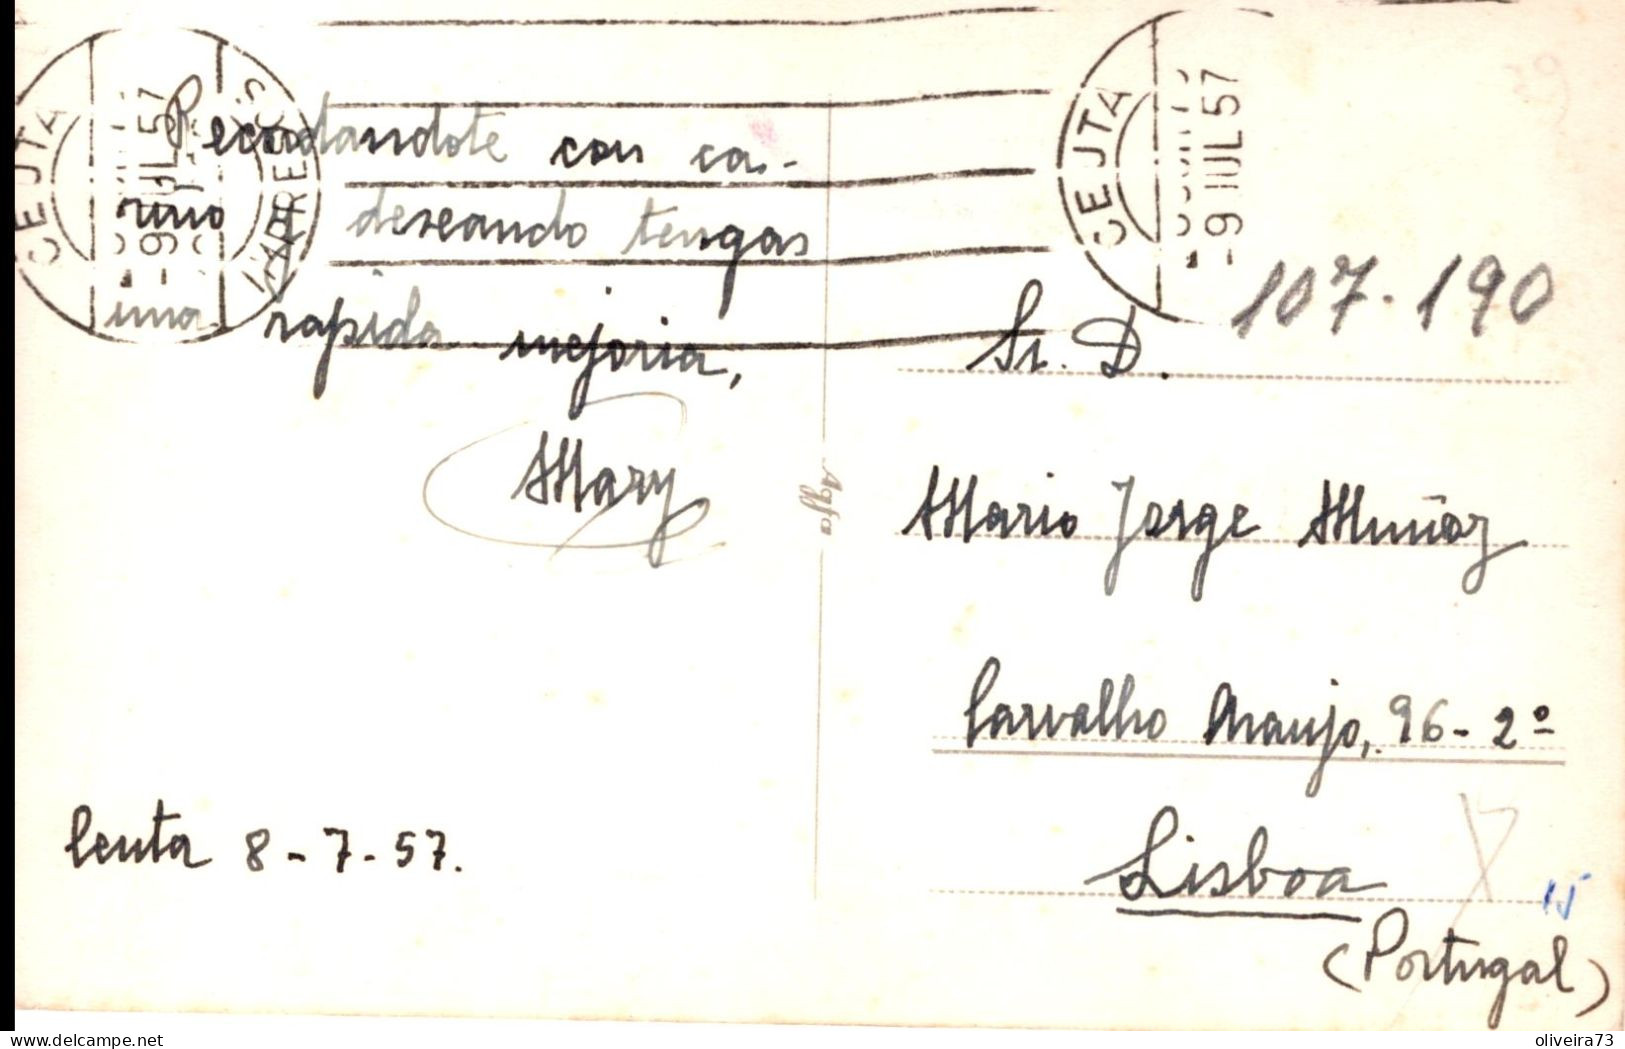 CEUTA
IMPRESOS
-9 JUL 57
CEUTA
-9 JUL 57
Recordandote con ca-
riño y deseando tengas
una rapida mejoria,
Mary
Ceuta 8-7-57.
Agfa
107.190
Sr. D.
Mario Jorge Muñoz
Carvalho Araujo, 96-2º
Lisboa
(Portugal)
15
oliveira73